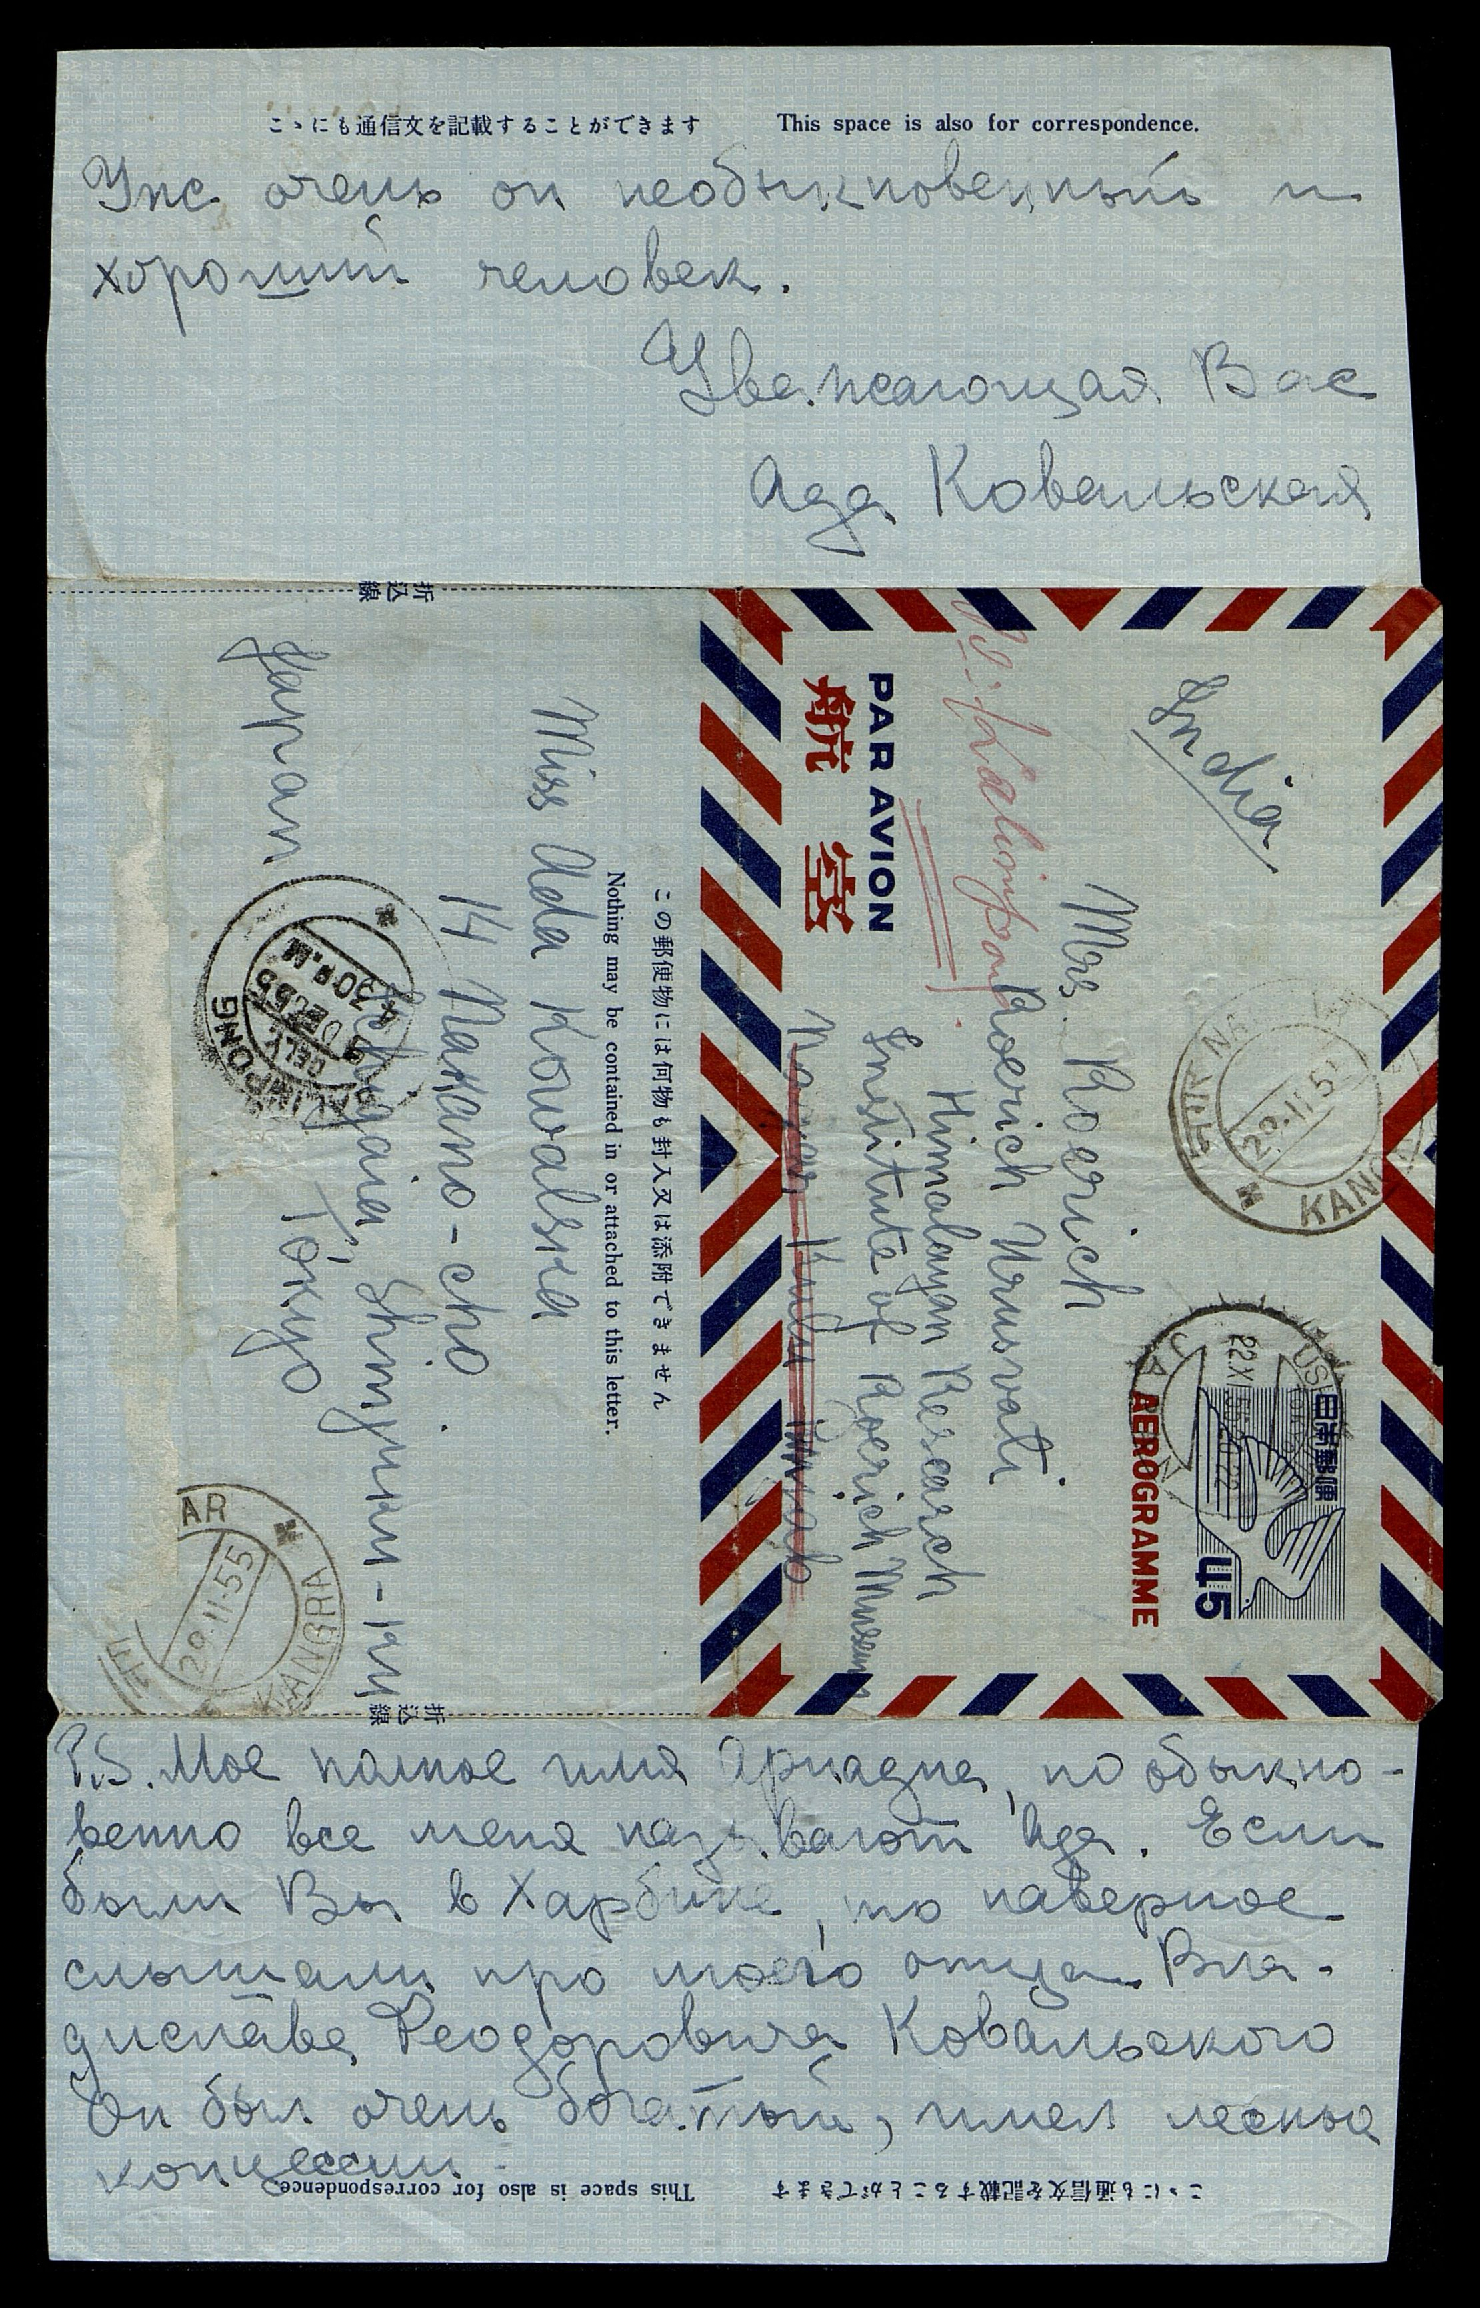 こゝにも通信文を記載することができます This space is also for correspondence.
очень он необыкновенный и
хороший человек.
Уважающая Вас
Ада Ковальская
折込線
India
Mrs. Roerich
Roerich Urusvati
Himalayan Research
Institute of Roerich Museum
Nagar, Kulu
Kalimpong
PAR AVION
航空
日本郵便
45
AEROGRAMME
KANG
29.11.5
22.XI.55
この郵便物には何物も封入又は添附できません
Nothing may be contained in or attached to this letter.
Miss Ada Kowalska
14 Nakano-cho
Ichigaia, Shinjuku-ku
Tokyo
Japan
KALIMPONG
DELY
4.30 P.M
DEC 55
AR
29.11.55
KANGRA
折込線
P.S. Мое полное имя Ариадна, но обыкно-
венно все меня называют Ада. Если
были Вы в Харбине, то наверное
слышали про моего отца Вла-
дислава Феодоровича Ковальского
Он был очень богатый, имел лесные
концессии.
こゝにも通信文を記載することができます This space is also for correspondence.